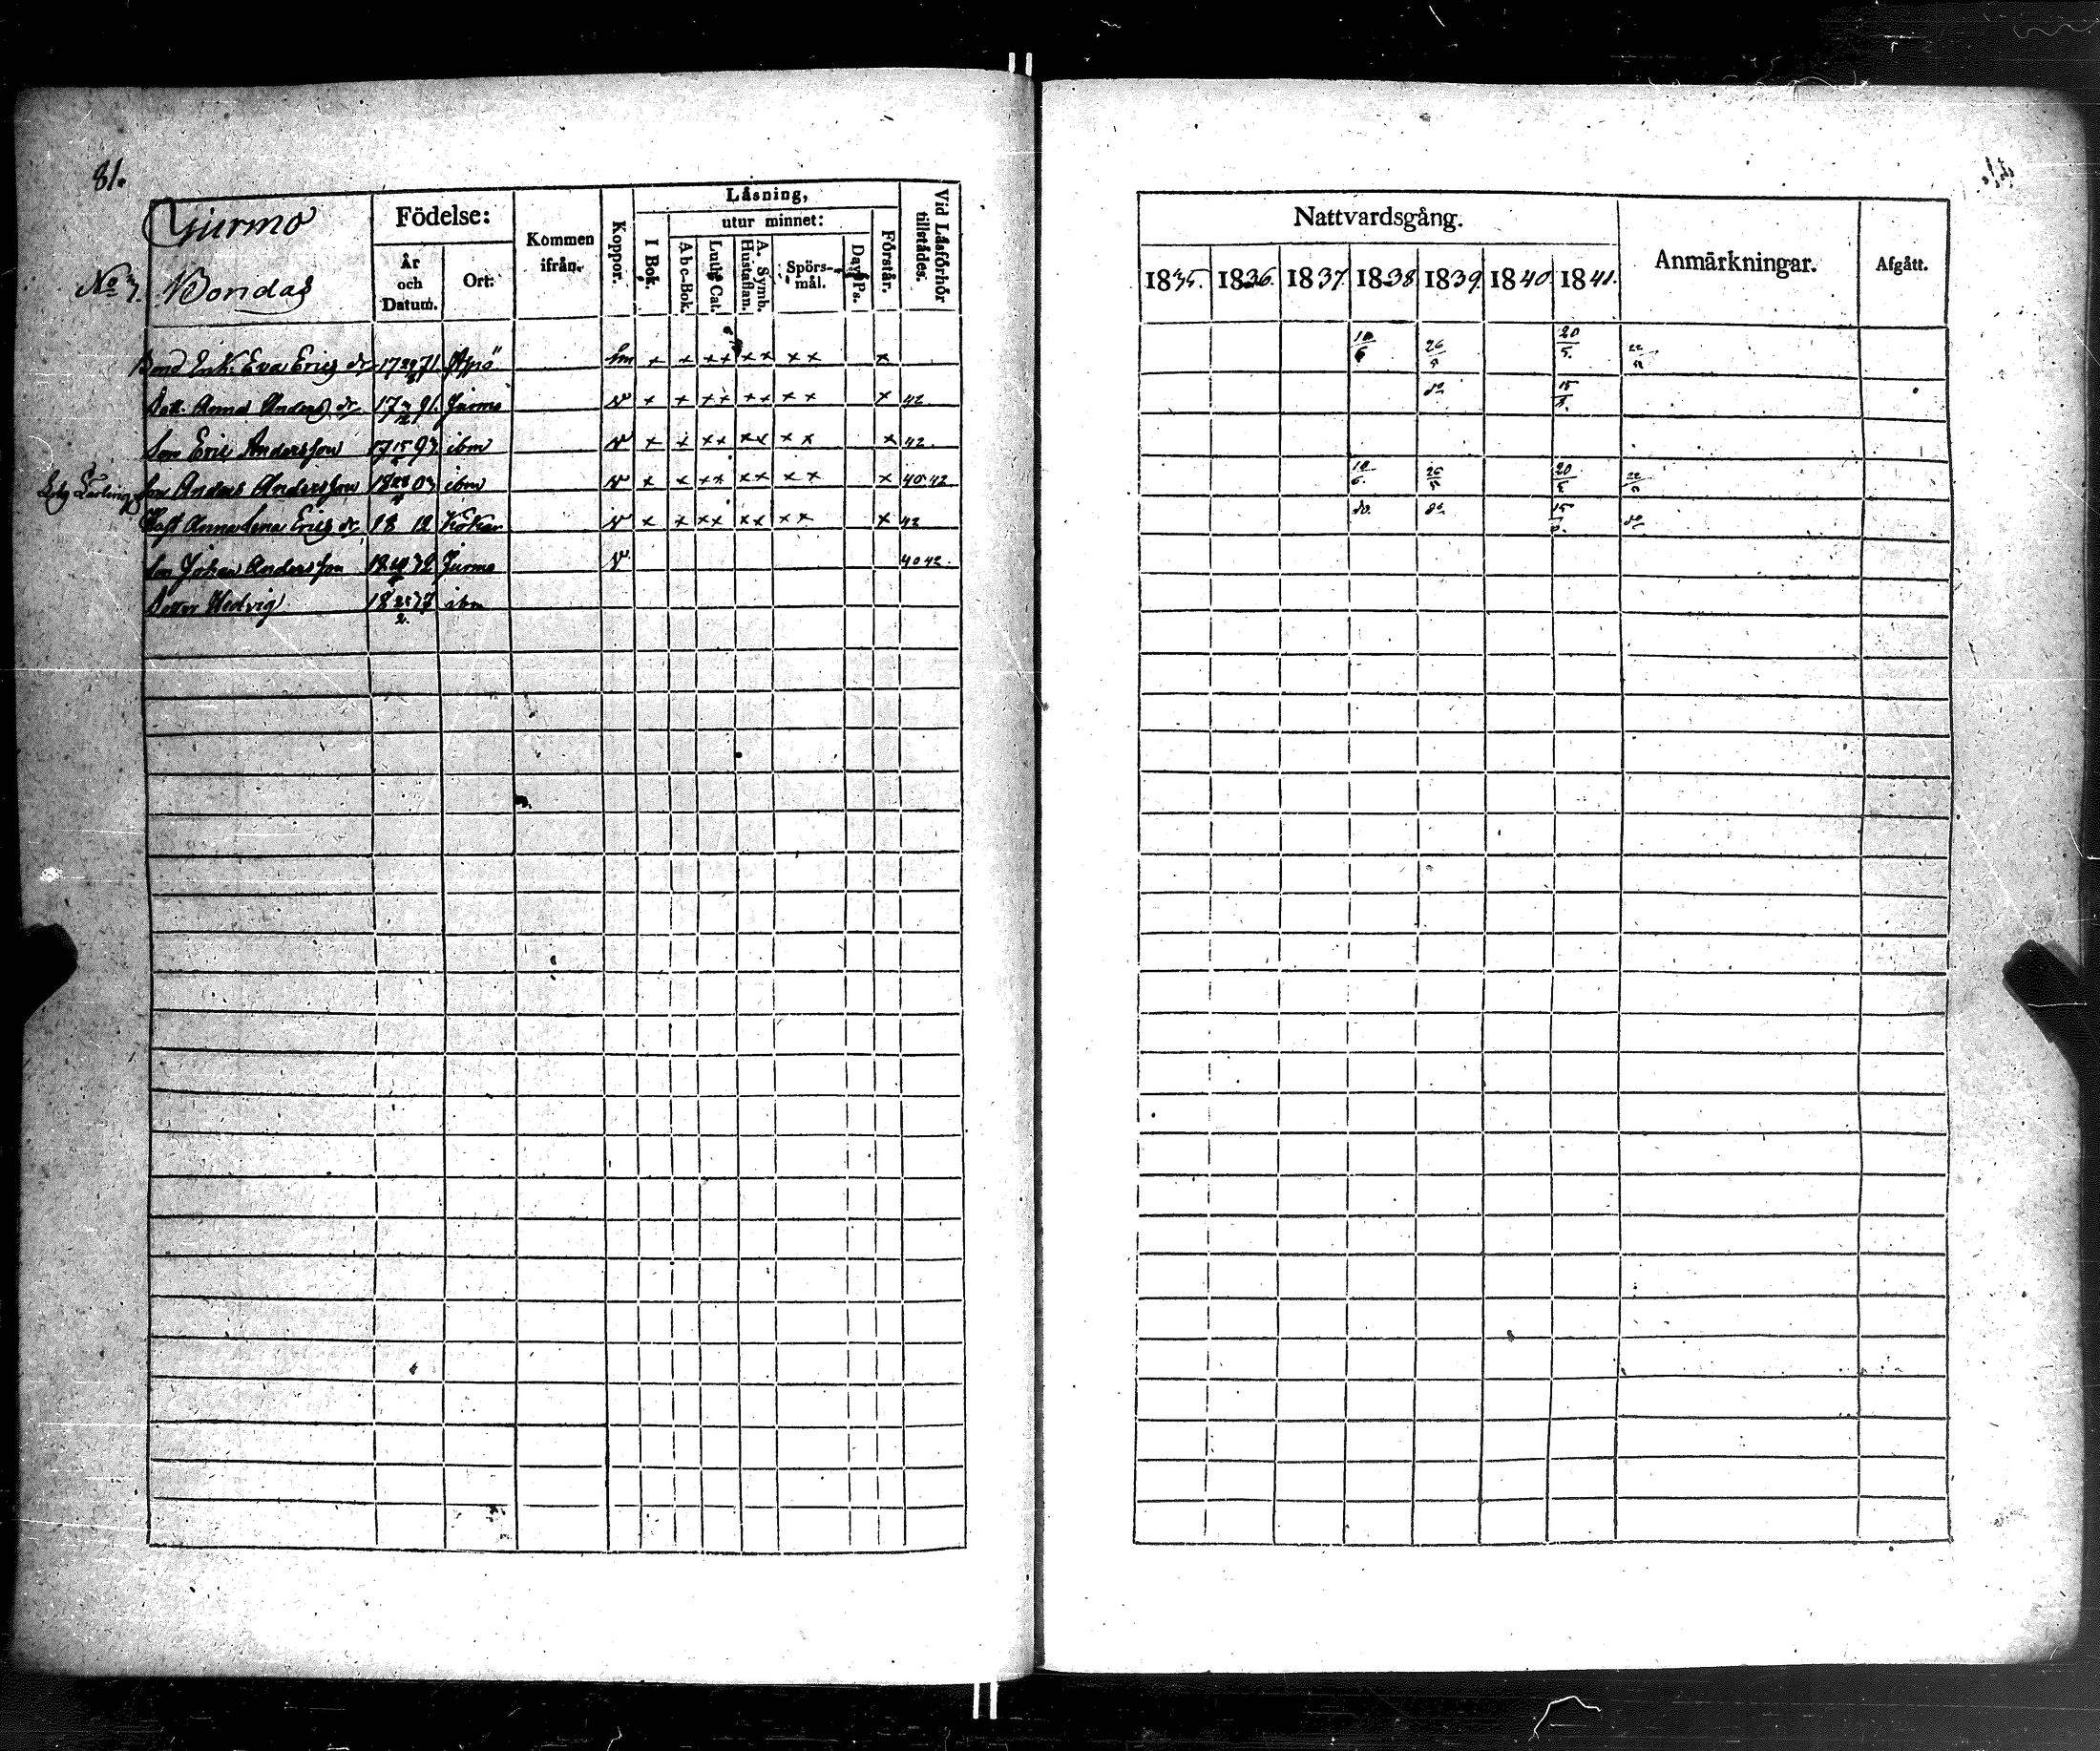 81.
Jurmo
No 3. Bondas
Födelse:
År och Datum.
Ort:
Kommen ifrån.
Koppor.
Läsning,
I Bok.
utur minnet:
Abc-Bok.
Luth. Cat.
A. Symb. Hustaflan.
Spörs-mål.
Dav. Ps.
Förstår.
Vid Läsförhör tillstådes.
Bond Enk. Eva Ericsdr 17 71. Åpö hm x x xx xx xx x
Dott. Anna Andersdr 17 91. Jurmo v x x xx xx xx x 42
Son Eric Andersson 17 15 93 ibm v x x xx xx xx x 42.
Son Anders Andersson 18 03 ibm v x x xx xx xx x 40.42
Hust Anna Lena Ericsdr. 18 12 Kökar v x x xx xx xx x 42
Son Johan Andersson 18 32 Jurmo v 40 42.
Dotter Hedvig 18 25/2. 37 ibm
Nattvardsgång.
1835. 1836. 1837. 1838 1839. 1840. 1841.
Anmärkningar.
Afgått.
10/6 26/5 20/5. 22/5
do 15/8.
10/6. 26/5 20/5 22/5
do. do 15/8. do